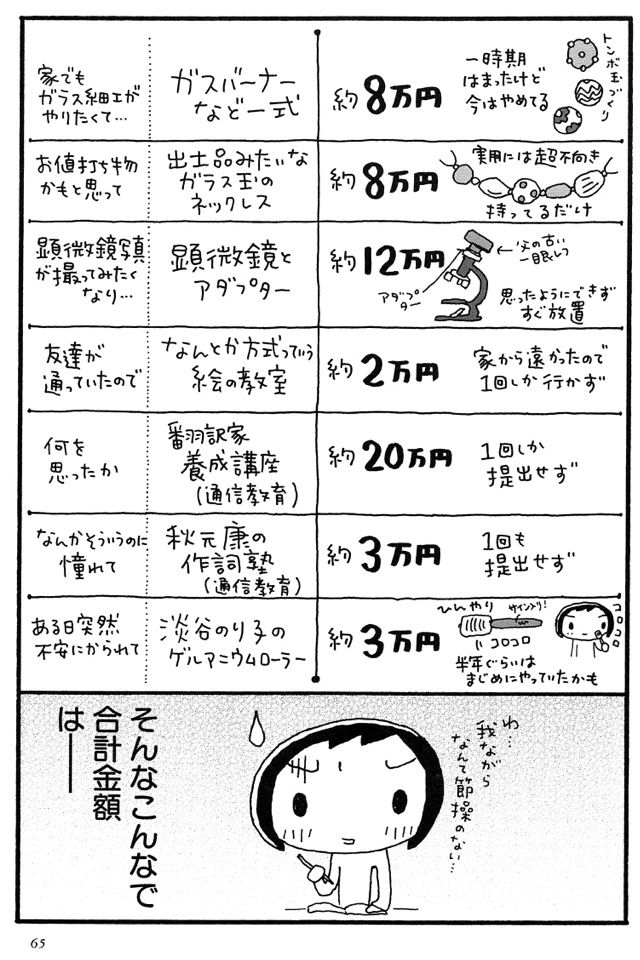 家でも
ガラス細工が
やりたくて…
ガスバーナー
など一式
約8万円
一時期
はまったけど
今はやめてる
トンボ玉づくり
お値打ち物
かもと思って
出土品みたいな
ガラス玉の
ネックレス
約8万円
実用には超不向き
持ってるだけ
顕微鏡写真
が撮ってみたく
なり…
顕微鏡と
アダプター
約12万円
アダプ
ター
←父の古い
一眼レフ
思ったようにできず
すぐ放置
友達が
通っていたので
なんとか方式っていう
絵の教室
約2万円
家から遠かったので
1回しか行かず
何を
思ったか
翻訳家
養成講座
(通信教育)
約20万円
1回しか
提出せず
なんかそういうのに
憧れて
秋元康の
作詞塾
(通信教育)
約3万円
1回も
提出せず
ある日突然
不安にかられて
淡谷のり子の
ゲルマニウムローラー
約3万円
ひんやり
サイン入り!
コロコロ
コロコロ
半年ぐらいは
まじめにやっていたかも
わ…
我ながら
なんて節操のない…
そんなこんなで
合計金額
は――
65